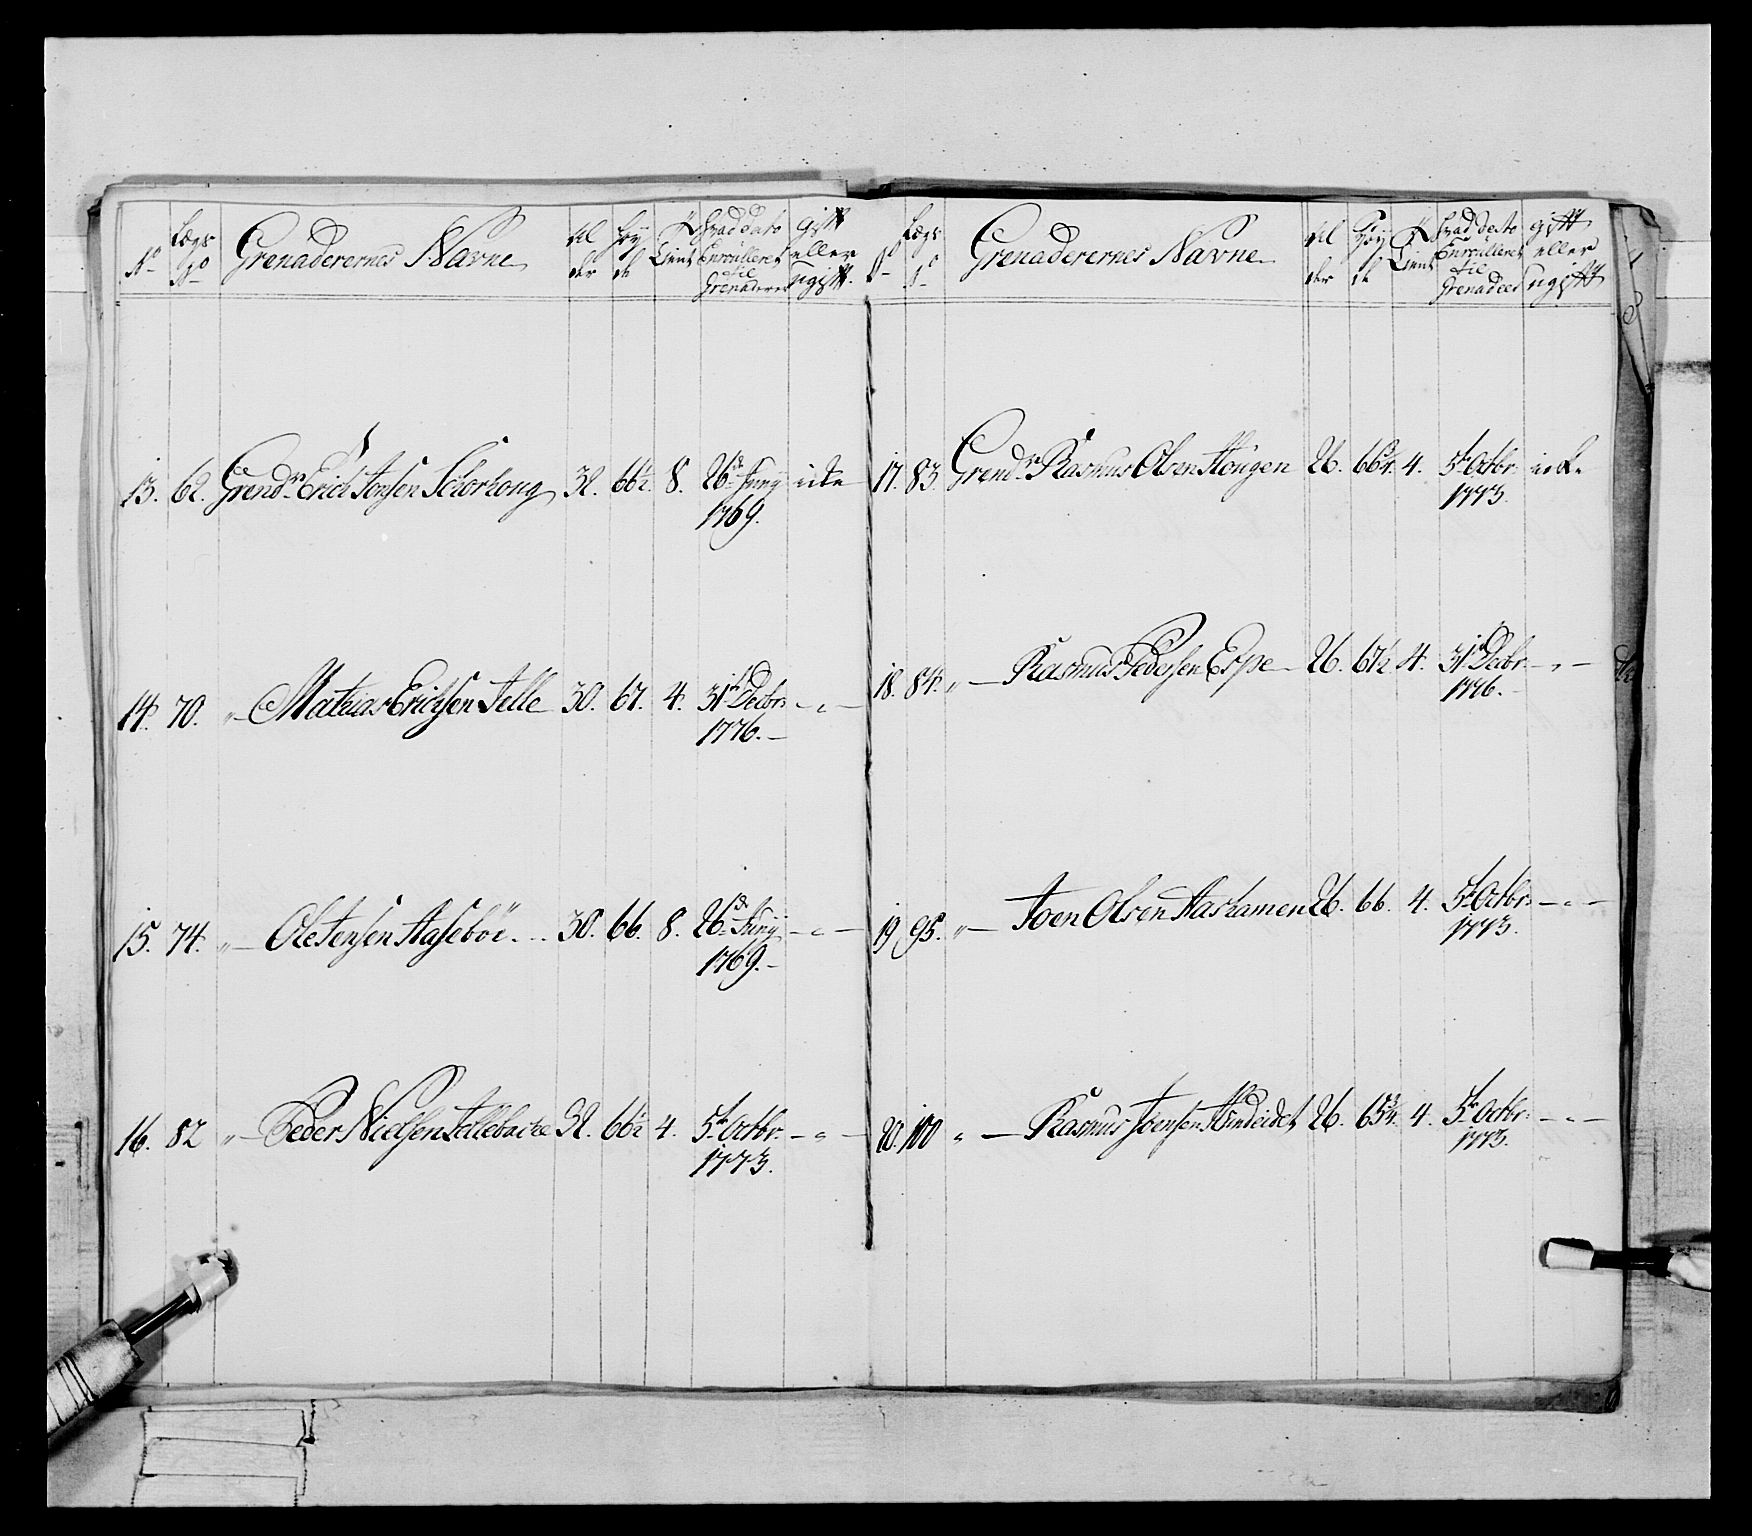 No
Lægs No
Grenaderernes Navne
al der
Høy de
Tient
hvad dato Enroulleret til Grenaderer
gift eller ugift.
13. 62. Grendr Erich Jonsen 32. 66½. 8. 26de Juny
1769.
14. 70. " Mathias Erichsen Telle 30. 67. 4. 31te Decbr. - " -
1776.
15. 74. " Ole Jensen Aasebøe 30. 66. 8. 26de Juny - " -
1769.
16. 82 " Peder Nielsen 32. 66½ 4. 5te Octbr. - " -
1773.
No
Lægs No
Grenaderernes Navne
al der
Høy de
Tient
hvad dato Enroulleret til Grenadeer
gift eller ugift
17. 83. Grendr Rasmus Olsen Hougen 26. 66¾. 4. 5te Octbr.
1773.
18. 84. " Rasmus Pedersen Espe 26. 67½ 4. 31te Decbr. - " -
1776.
19 95. " Joen Olsen 26. 66. 4. 5te Octbr. - " -
1773.
20. 100 " Rasmus Joensen Windeidet 26. 65¾. 4. 5te Octbr. - " -
1773.